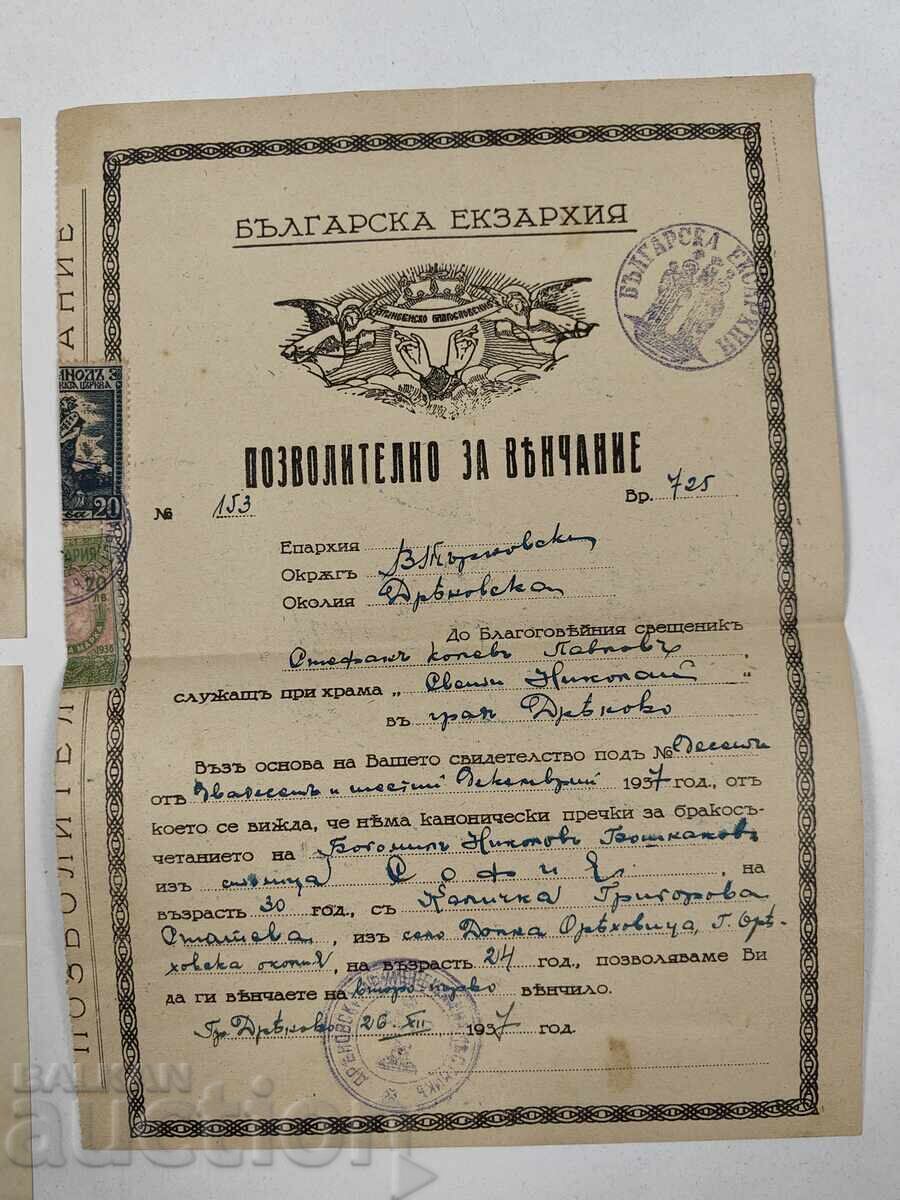 БЪЛГАРСКА ЕКЗАРХИЯ
БЪЛГАРСКА ЕКСАРХИЯ
БЛАГОСЛОВЕНИЕ
ПОЗВОЛИТЕЛНО ЗА ВѢНЧАНИЕ
№ 153 Вр. 725
Епархия
Окрѫгъ В Търновски
Околия Дрѣновска
До Благоговѣйния свещеникъ
Стефанъ Колевъ Павловъ
служащъ при храма „Свети Николай“
въ град Дрѣново
Възъ основа на Вашето свидетелство подъ № Десети
отъ Двадесет и шестий Декемврий 1937 год., отъ
което се вижда, че нѣма канонически пречки за бракосъ-
четанието на Богомилъ Николовъ Бошнаковъ
изъ столица София, на
възрасть 30 год., съ Каличка Григорова
Статева, изъ село Долна Орѣховица, Г. Орѣ-
ховска околия, на възрасть 24 год., позволяваме Ви
да ги вѣнчаете на второ-първо вѣнчило.
Гр. Дрѣново 26. XII 1937 год.
ДРѢНОВСКИ
ПОЗВОЛИТЕЛ
АНИЕ
ИНОДЪ
ЦЪРКВА
20
АРИЯ
20
ЛВ
1938
BALKAN
auction